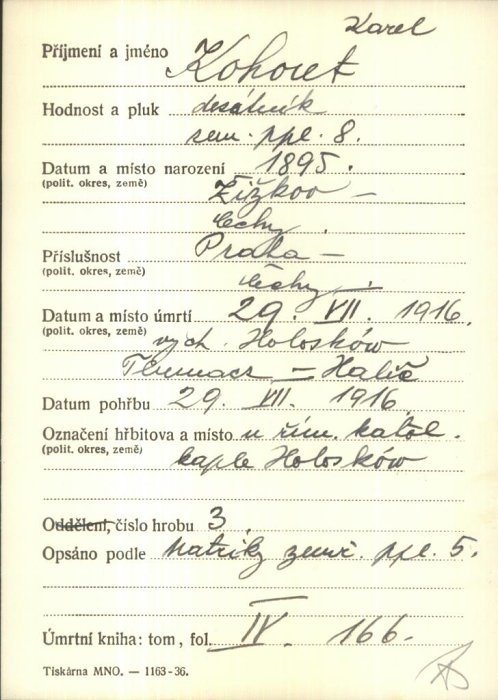 Karel
Příjmení a jméno Kohout
Hodnost a pluk desátník
zem. ppl. 8.
Datum a místo narození 1895.
(polit. okres, země) Žižkov –
Čechy.
Příslušnost Praha –
(polit. okres, země) Čechy –
Datum a místo úmrtí 29. VII. 1916.
(polit. okres, země) vých. Holosków
Tlumacz – Halič
Datum pohřbu 29. VII. 1916
Označení hřbitova a místo u řím. katol.
(polit. okres, země) kaple Holosków
Oddělení, číslo hrobu 3.
Opsáno podle Matriky zemř. ppl. 5.
Úmrtní kniha: tom, fol. IV. 166.
Tiskárna MNO. — 1163-36.